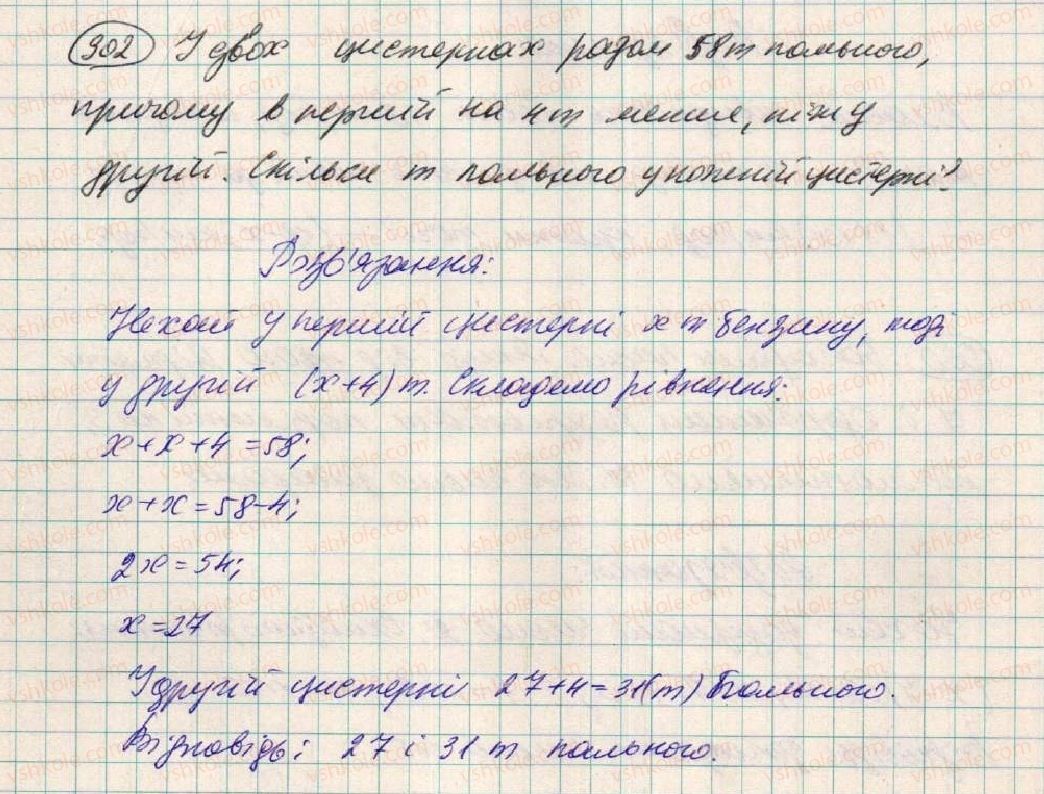 302 У двох цистернах разом 58 т пального,
причому в першій на 4 т менше, ніж у
другій. Скільки т пального у кожній цистерні?
Розв'язання:
Нехай у першій цистерні x т бензину, тоді
у другій (x+4) т. Складемо рівняння:
x+x+4=58;
x+x=58-4;
2x=54;
x=27
У другій цистерні 27+4=31(т) пального.
Відповідь: 27 і 31 т пального.